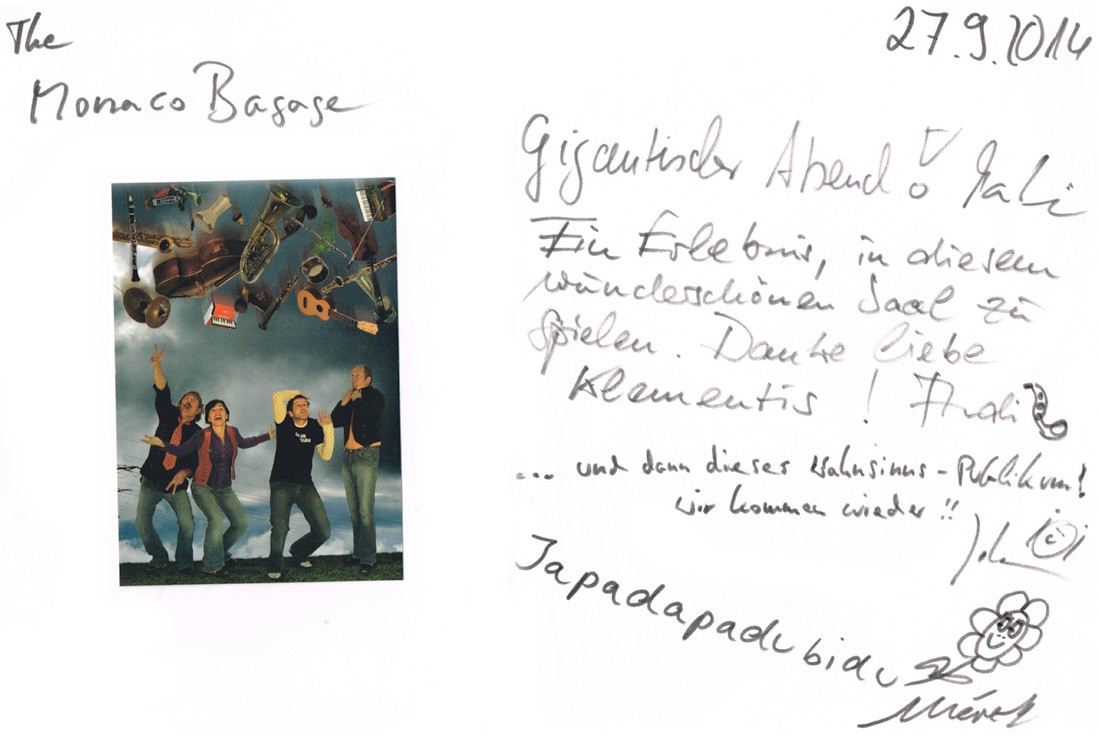 The
Monaco Bagage
27.9.2014
Gigantischer Abend!
Ein Erlebnis, in diesem
wunderschönen Saal zu
spielen. Danke liebe
Klementis! Andi
... und dann dieses Wahnsinns-Publikum!
wir kommen wieder!!
Japadapadubidu